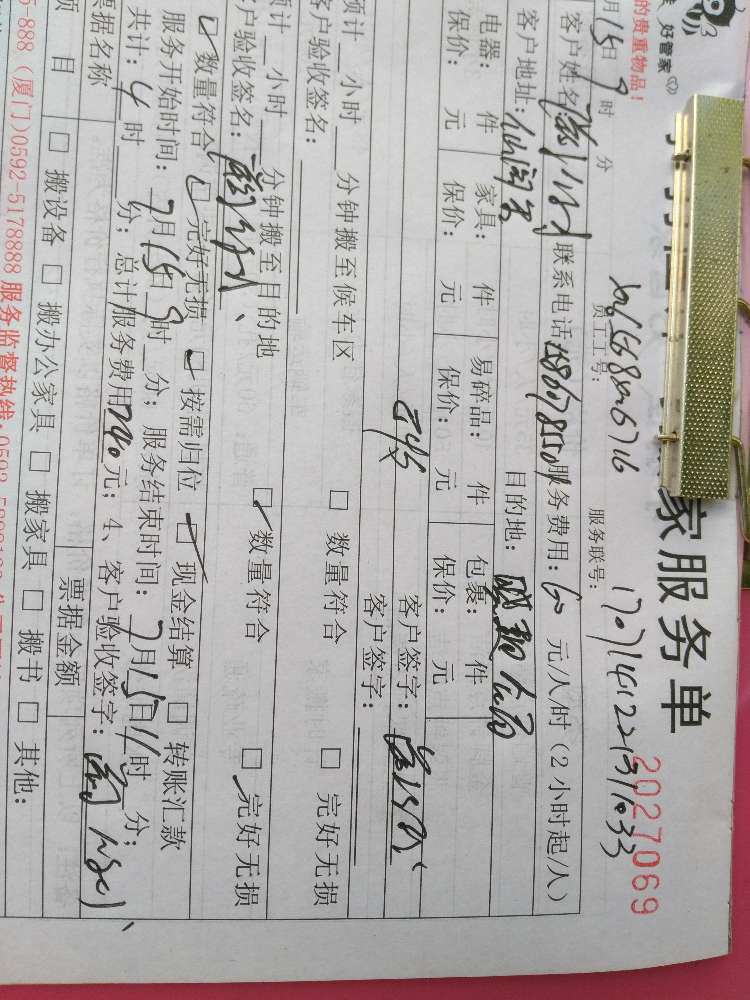 好管家
家服务单
2027069
的贵重物品！
员工工号：
服务联号：
月15日9时 分
客户姓名 联系电话 服务费用：60元/人/时（2小时起/人）
客户地址： 目的地：
电器： 件 家具： 件 易碎品： 件 包裹： 件
保价： 元 保价： 元 保价： 元 保价： 元
客户签字：
客户签字：
预计__小时__分钟搬至候车区 □ 数量符合 □ 完好无损
客户验收签名：
预计__小时__分钟搬至目的地 □ 数量符合 □ 完好无损
客户验收签名：
□ 数量符合 □ 完好无损 □ 按需归位 □ 现金结算 □ 转账汇款
服务开始时间：7月15日9时__分；服务结束时间：7月15日11时 分；
共计：4时__分；总计服务费用 元；4、客户验收签字：
票据名称 票据金额
项 目 □ 搬设备 □ 搬办公家具 □ 搬家具 □ 搬书 □ 其他：
5-888（厦门）0592-5178888 服务监督热线：